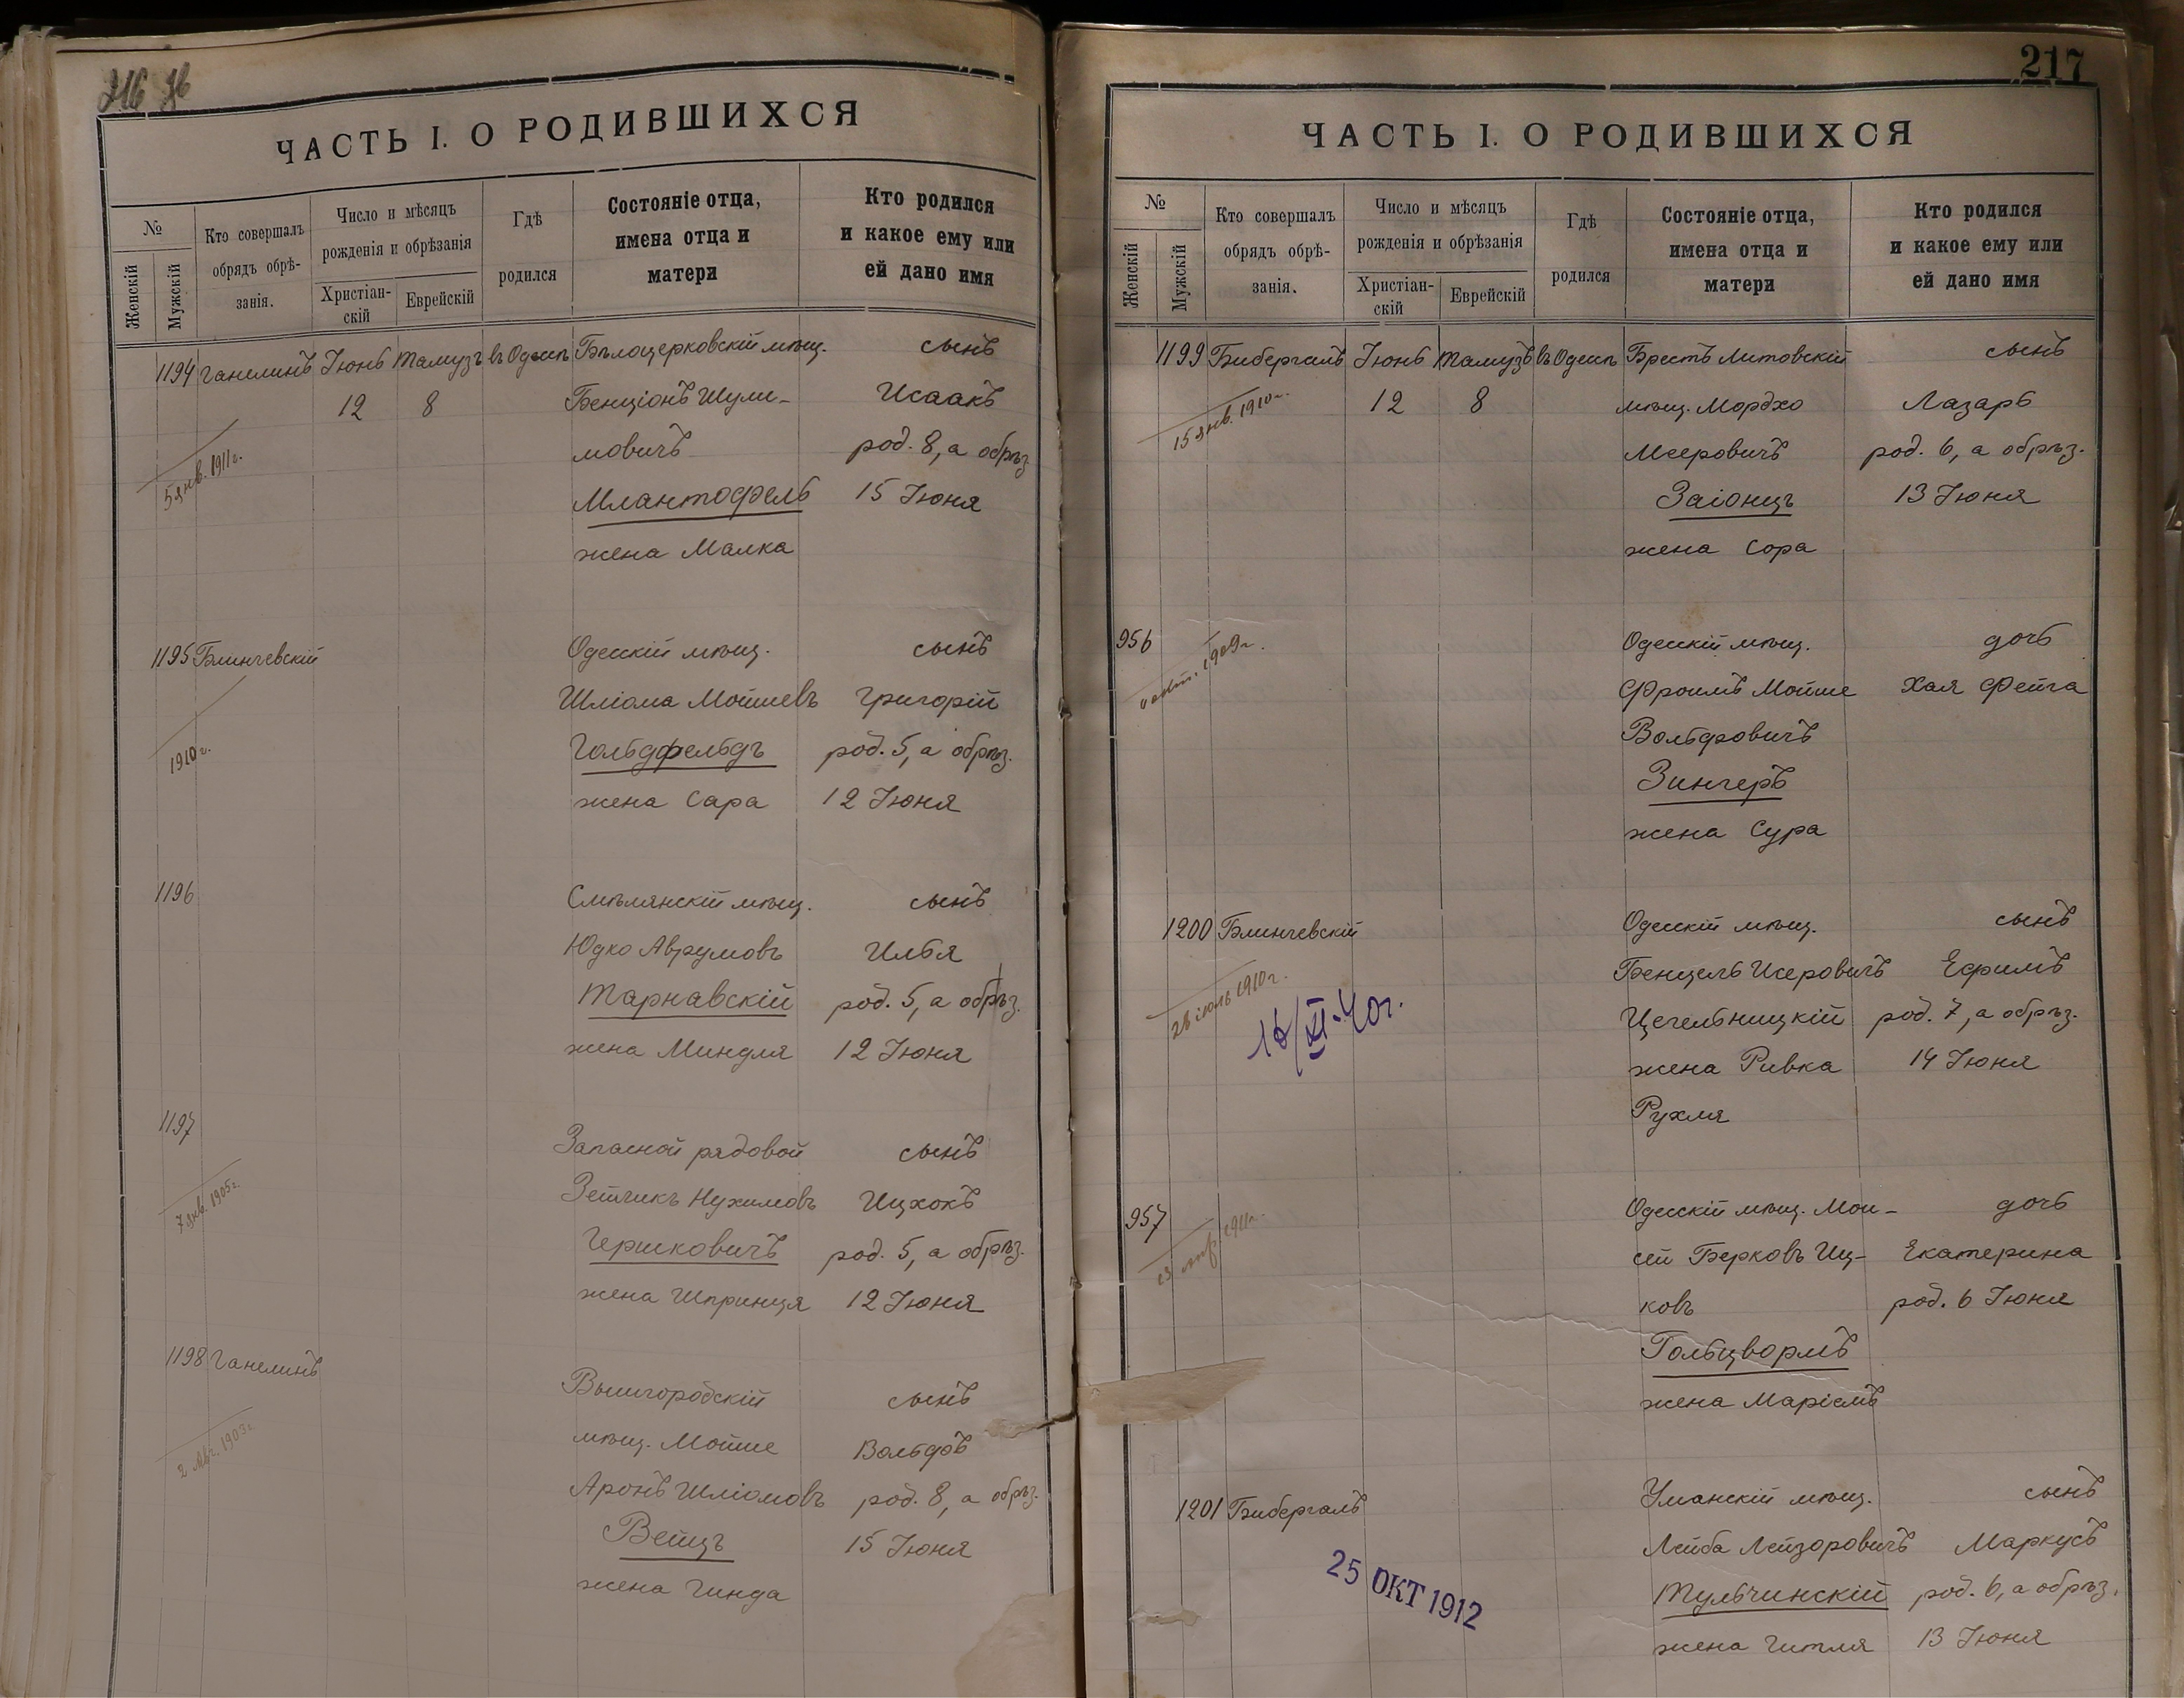 ЧАСТЬ I. О РОДИВШИХСЯ
№
Женскій
Мужскій
Кто совершалъ
обрядъ обрѣ-
занія.
Число и мѣсяцъ
рожденія и обрѣзанія
Христіан-
скій
Еврейскій
Гдѣ
родился
Состояніе отца,
имена отца и
матери
Кто родился
и какое ему или
ей дано имя
1194 Ганелинъ Іюнь Тамузъ въ Одессѣ Бѣлоцерковскій мѣщ. сынъ
12 8 Бенціонъ Шули- Исаакъ
мовичъ род. 8, а обрѣз
5 янв. 1911 г.
15 Іюня
жена Малка
1195 Блинчевскій Одесскій мѣщ. сынъ
Шліома Мошиевъ Григорій
1910 г. Гольдфельдъ род. 5, а обрѣз.
жена Сара 12 Іюня
1196 Смѣлянскій мѣщ. сынъ
Юдко Аврумовъ Илья
Тарнавскій род. 5, а обрѣз.
жена Миндля 12 Іюня
1197 Запасной рядовой сынъ
7 янв. 1905 г. Нухимовъ Ицхокъ
Гершковичъ род. 5, а обрѣз.
жена Шпринця 12 Іюня
1198 Ганелинъ Вышгородскій сынъ
мѣщ. Мойше Вольфъ
Аронъ Шліомовъ род. 8, а обрѣз.
Вейцъ 15 Іюня
жена Гинда
217
ЧАСТЬ I. О РОДИВШИХСЯ
№
Женскій
Мужскій
Кто совершалъ
обрядъ обрѣ-
занія.
Число и мѣсяцъ
рожденія и обрѣзанія
Христіан-
скій
Еврейскій
Гдѣ
родился
Состояніе отца,
имена отца и
матери
Кто родился
и какое ему или
ей дано имя
1199 Бибергалъ Іюнь Тамузъ въ Одессѣ Брестъ Литовскій сынъ
15 янв. 1910 г. 12 8 мѣщ. Мордхо Лазарь
Мееровичъ род. 6, а обрѣз.
Заіонцъ 13 Іюня
жена Сора
956 Одесскій мѣщ. дочь
1909 г. Фроимъ Мойше Хая Фейга
Вольфовичъ
Зингеръ
жена Сура
1200 Блинчевскій Одесскій мѣщ. сынъ
Бенцель Исеровичъ Ефримъ
28 іюль 1910 г. Цечельницкій род. 7, а обрѣз.
16/XI-40 г. жена Ривка 14 Іюня
Рухля
957 Одесскій мѣщ. Мои- дочь
1911 г. сей Берковъ Иц- Екатерина
ковъ род. 6 Іюня
Гольцвормъ
жена Маріемъ
1201 Бибергалъ Уманскій мѣщ. сынъ
Лейба Лейзоровичъ Маркусъ
25 ОКТ 1912 Тульчинскій род. 6, а обрѣз.
жена Гитля 13 Іюня